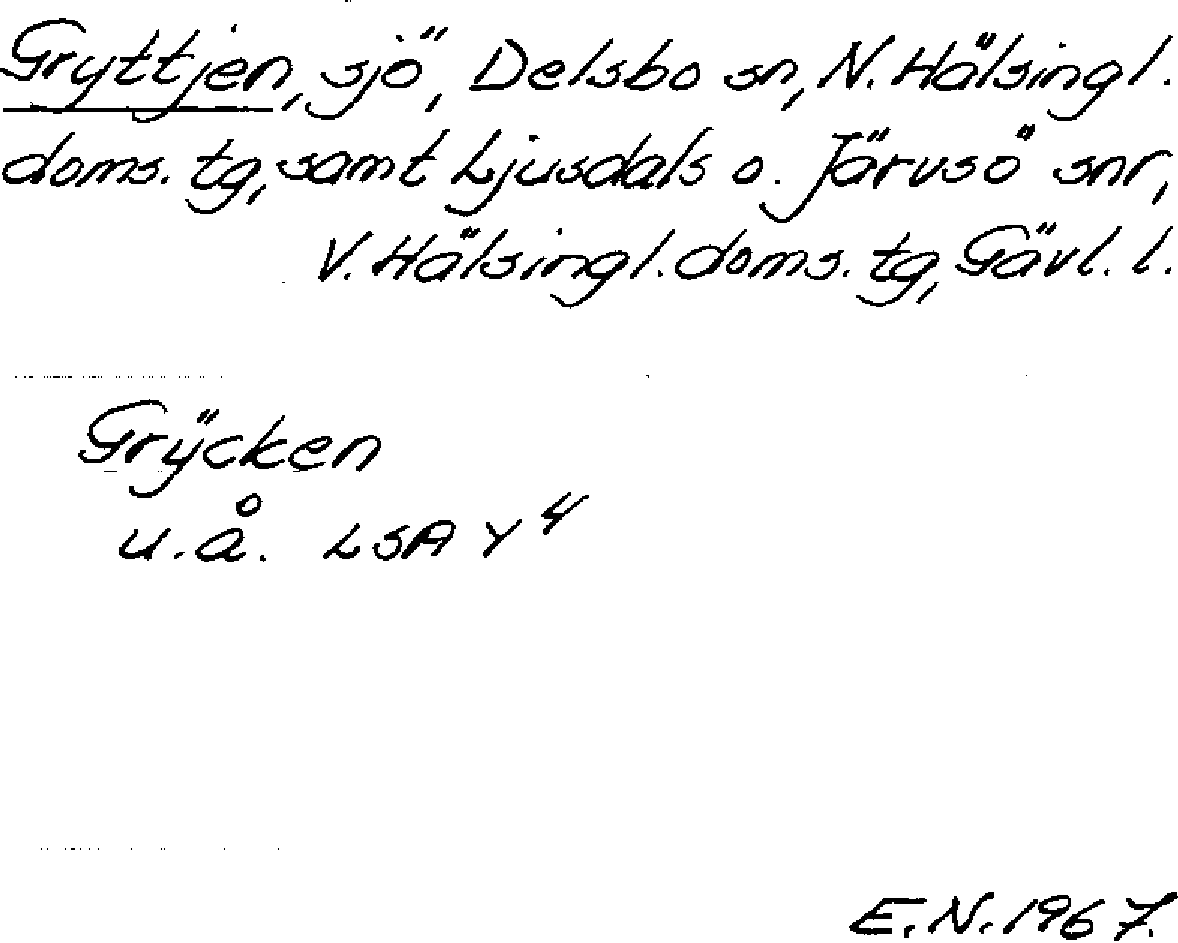 Gryttjen, sjö, Delsbo sn, N. Hälsingl.
doms. tg, samt Ljusdals o. Järvsö snr,
V. Hälsingl. doms. tg, Gävl. l.
Grÿcken
u.å. LSA Y 4
E.N. 1967.